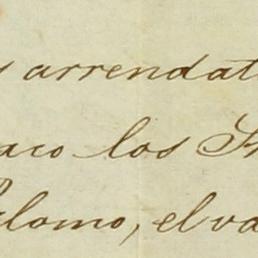 s arrendat
aco los S
alomo, el va